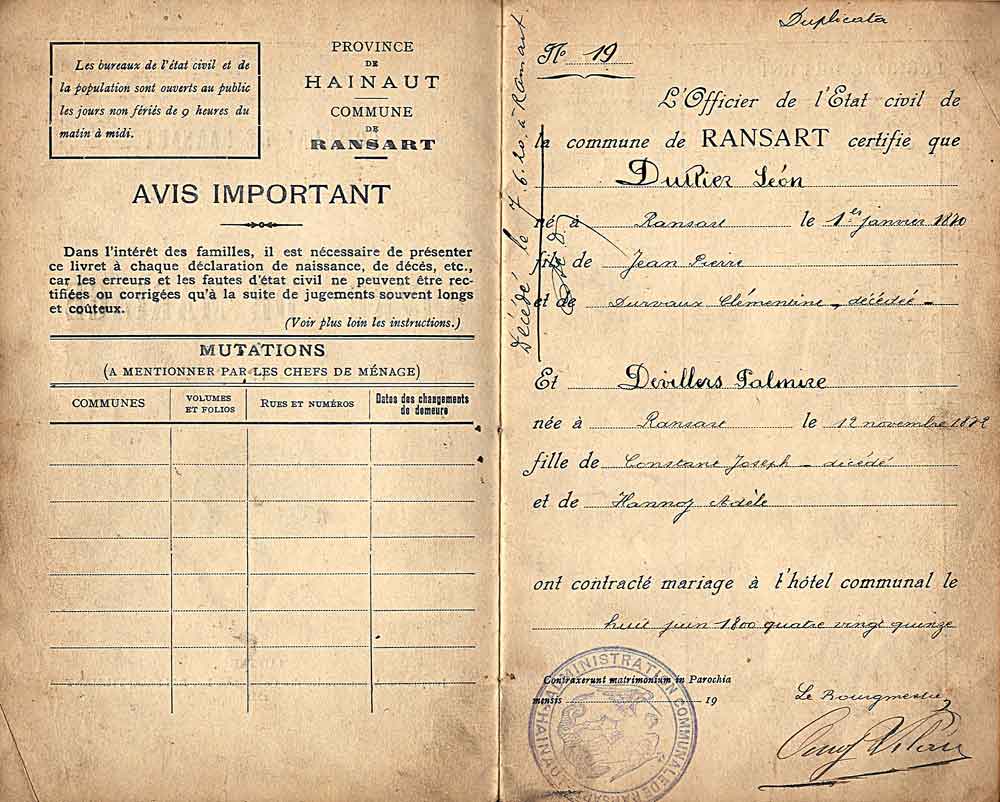 Les bureaux de l'état civil et de
la population sont ouverts au public
les jours non fériés de 9 heures du
matin à midi.
PROVINCE
DE
HAINAUT
COMMUNE
DE
RANSART
AVIS IMPORTANT
Dans l'intérêt des familles, il est nécessaire de présenter
ce livret à chaque déclaration de naissance, de décés, etc.,
car les erreurs et les fautes d'état civil ne peuvent être rec-
tifiées ou corrigées qu'à la suite de jugements souvent longs
et coûteux.
(Voir plus loin les instructions.)
MUTATIONS
(A MENTIONNER PAR LES CHEFS DE MÉNAGE)
COMMUNES
VOLUMES
ET FOLIOS
RUES ET NUMÉROS
Dates des changements
de demeure
Duplicata
No 19
L'Officier de l'Etat civil de
la commune de RANSART certifie que
Léon
né à Ransart le 1er janvier 1870
fils de Jean Pierre
et de Durvaux Clémentine, décédée
décédé le 7.6.20. à Ransart
Et Devillers Palmire
née à Ransart le 12 novembre 1872
fille de Constant Joseph - décédé
et de Hannoy Adèle
ont contracté mariage à l'hôtel communal le
huit juin 1800 quatre vingt quinze
Contraxerunt matrimonium in Parochia
mensis 19
Le Bourgmestre
ADMINISTRATION COMMUNALE DE RANSART HAINAUT